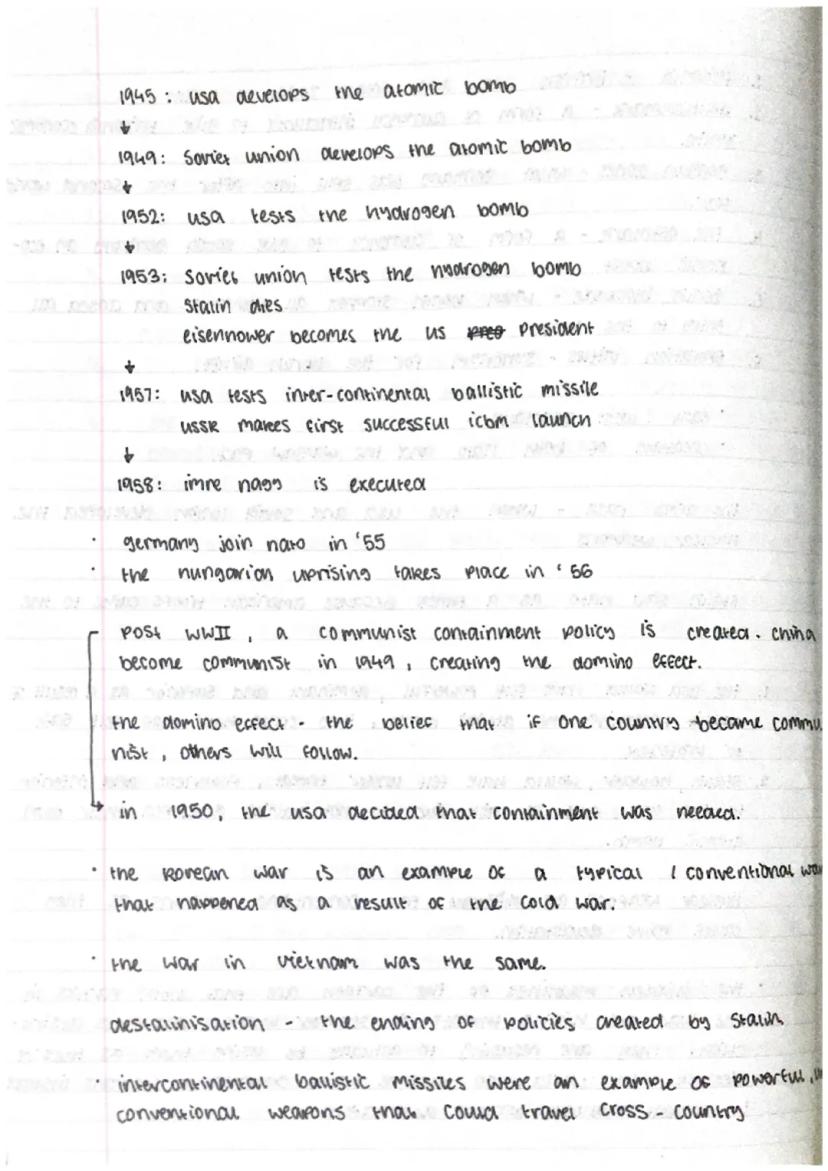 1945: usa develops the atomic bomb
↓
1949: Soviet union develops the atomic bomb
↓
1952: usa tests the hydrogen bomb
↓
1953: Soviet union tests the hydrogen bomb
Stalin dies
eisenhower becomes the us president
↓
1957: usa tests inter-continental ballistic missile
USSR makes first successful icbm launch
↓
1958: imre nagy is executed
· germany join nato in '55
· the hungarian uprising takes place in '56
post WWII, a communist containment policy is created. china
become communist in 1949, creating the domino effect.
the domino effect - the belief that if one country became commu
nist, others will follow.
in 1950, the usa decided that containment was needed.
· the korean war is an example of a typical / conventional war
that happened as a result of the cold war.
· the war in vietnam was the same.
destalinisation - the ending of policies created by Stalin
· intercontinental ballistic missiles were an example of powerful,
conventional weapons that could travel cross-country